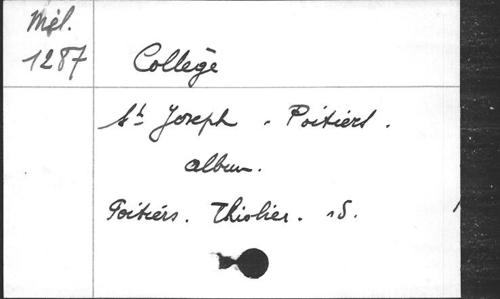 Mél.
1287
Collège
St Joseph - Poitiers.
album.
Poitiers. Thiolier. s.